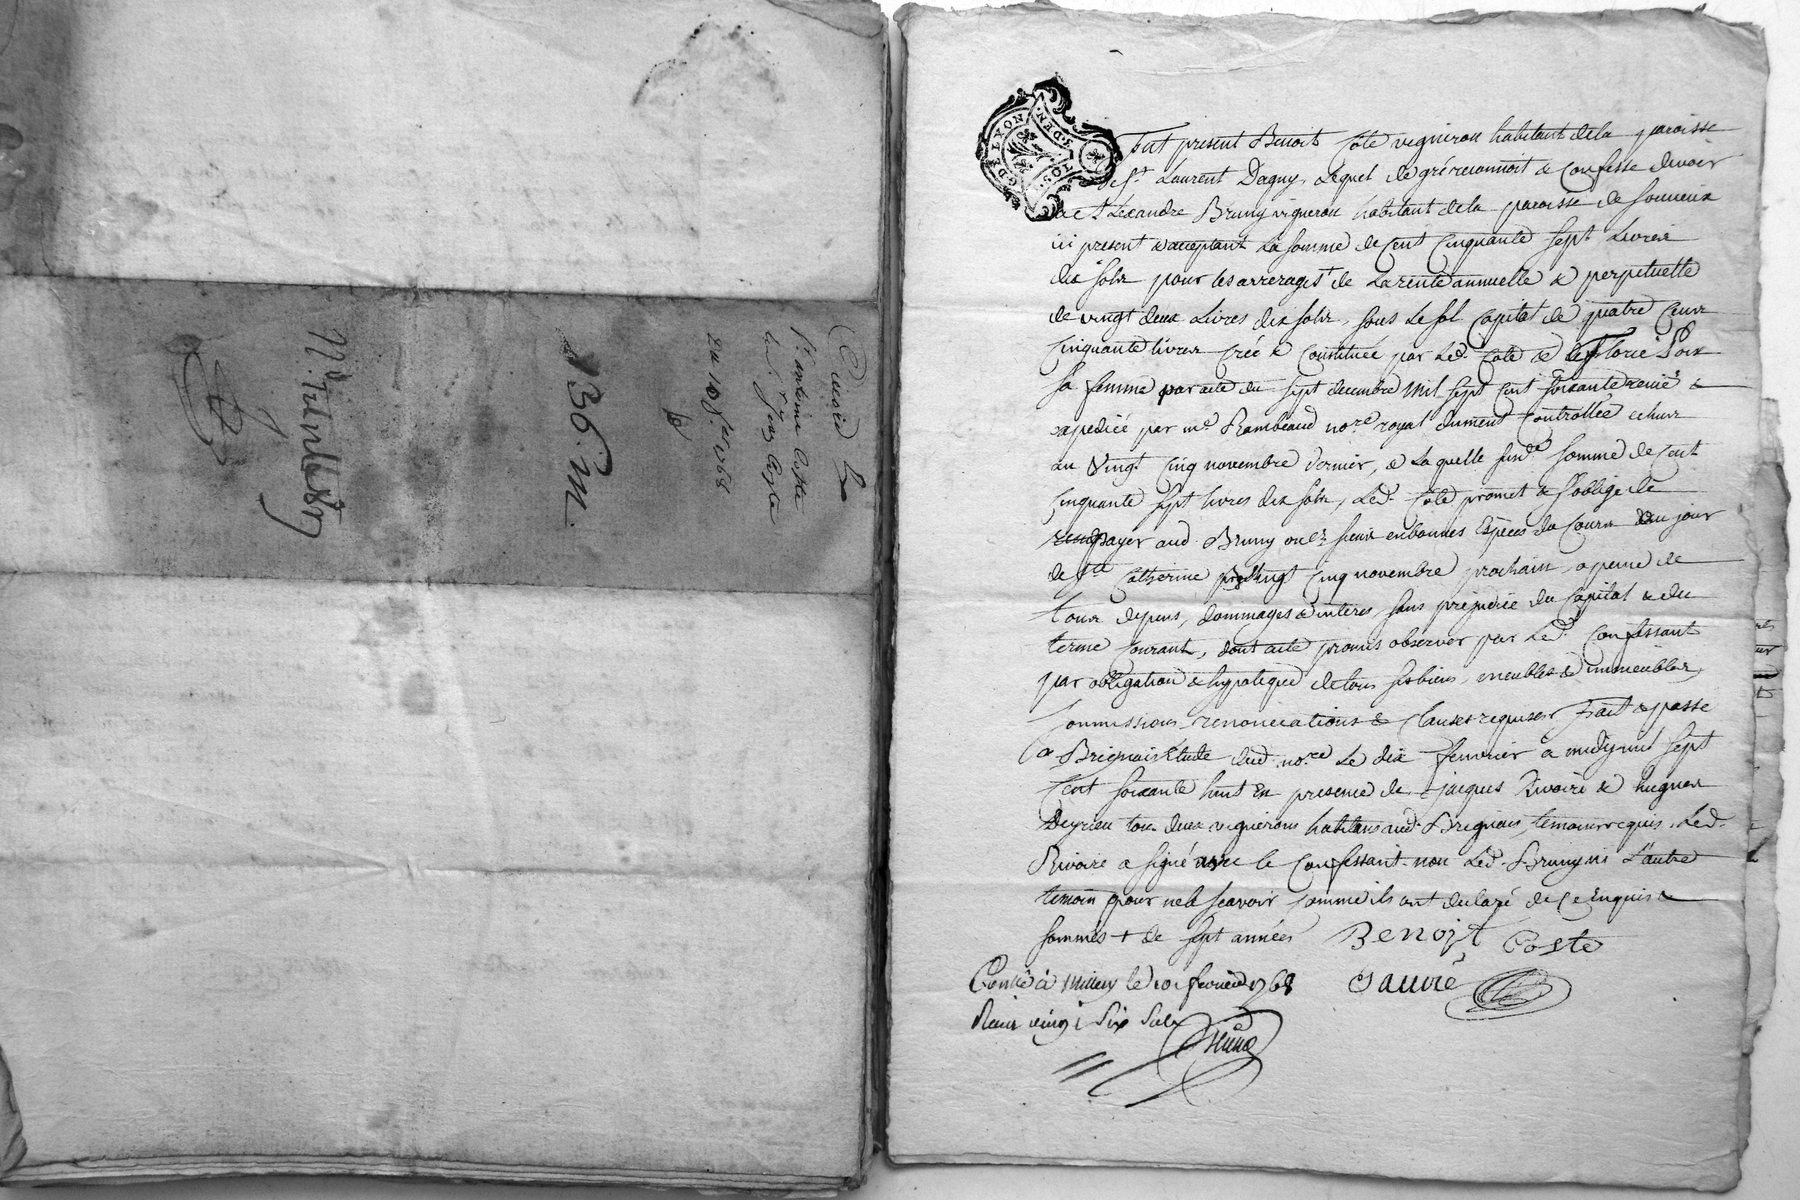 Quitt
s.r antoine Coste
à s.r jean Coste
du 10 f. 1768
136. m.
G.DE LYON
TOS.
3.DEN.
Fut present Benoit Coste vigneron habitant de la paroisse
de S.t Laurent Dagny, Lequel de gré reconnoit & Confesse devoir
a Alexandre Bruny vigneron habitant de la paroisse de Soucieux
ici present & acceptant La somme de Cent Cinquante Sept Livres
dix sols pour les arrerages + de La rente annuelle & perpetuelle
de vingt deux Livres dix sols, sous Le sol Capital de quatre Cent
Cinquante livres Créé & Constituée par Led. Coste &
sa femme par acte du sept decembre mil sept Cent soixante
expedié par m.e Rambeaud no.re royal dument Controllée echus
au vingt Cinq novembre dernier, & Laquelle susd.e somme de Cent
Cinquante sept livres dix sols, Led. Coste promet & s'oblige de
payer aud. Bruny ou es siens en bonnes Espèces du Cours au jour
de S.te Catherine vingt Cinq novembre prochain, a peine de
tous depens, dommages & interes, sans prejudice du Capital & du
terme Courant, dont acte promis observer par Led. Confessant
par obligation & hypoteque de tous ses biens meubles & immeubles,
soumissions, renonciations & Clauses requises Fait & passé
a Brignais Etude dud. no.re Le dix fevrier a midy mil sept
Cent soixante huit En presence de jacques Rivoire & hugues
Deyrieu tous deux vignerons habitans aud. Brignais, temoins requis, Led.
Rivoire a signé avec le Confessant non Led. Bruny ni L'autre
temoin pour ne le scavoir comme ils ont declaré de Ce Enquis &
sommés + de sept années Benoit Coste
Conllé à Millery le 10. fevrier 1768 Sauvé
Reçu vingt Six Sols